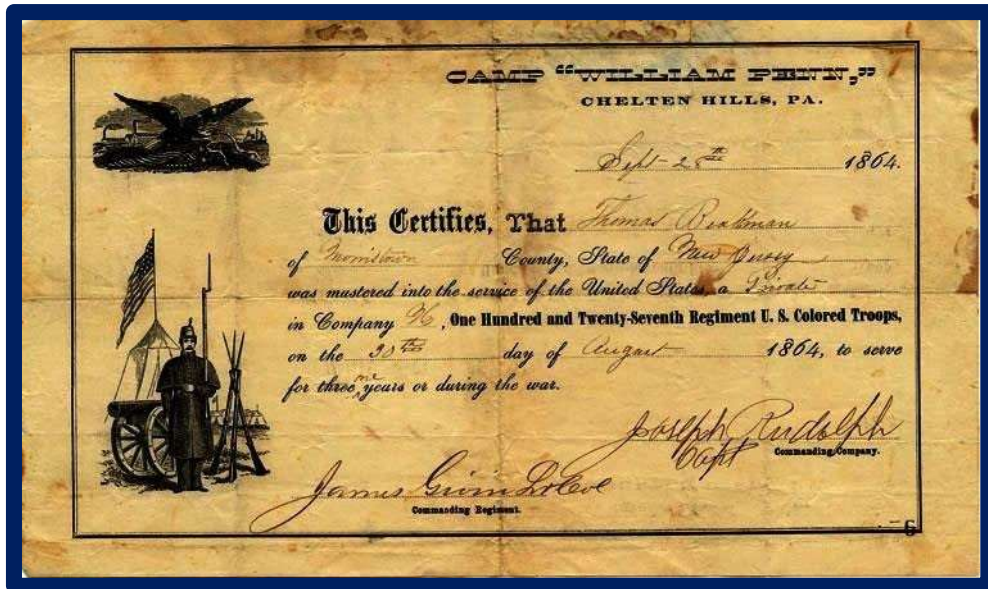 CAMP "WILLIAM PENN,"
CHELTEN HILLS, PA.
Sept 2 1864.
This Certifies, That Thomas Beakman
of Morristown County, State of New Jersey
was mustered into the service of the United States, a Private
in Company , One Hundred and Twenty-Seventh Regiment U. S. Colored Troops,
on the 30th day of August 1864, to serve
for three one years or during the war.
Joseph Rudolph
Capt Commanding Company.
James Givin Lt Col
Commanding Regiment.